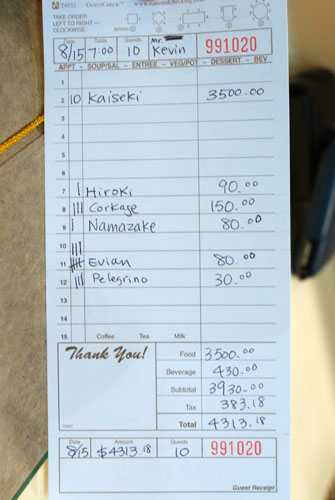 T4952 GUESTCHECK™
TAKE ORDER
LEFT TO RIGHT—
CLOCKWISE
Date Table Guests
8/15 7:00 10 Mr. Kevin 991020
APPT - SOUP/SAL - ENTREE - VEG/POT - DESSERT - BEV
1
2 10 Kaiseki 3500.00
3
4
5
6
7 | Hiroki 90.00
8 ||| Corkage 150.00
9 | Namazake 80.00
10 |||
11 Evian 80.00
12 ||| Pelegrino 30.00
13
14
15 Coffee Tea Milk
Thank You!
Food 3500.00
Beverage 430.00
Subtotal 3930.00
Tax 383.18
Total 4313.18
Date Amount Guests
8/15 $4313.18 10 991020
Guest Receipt